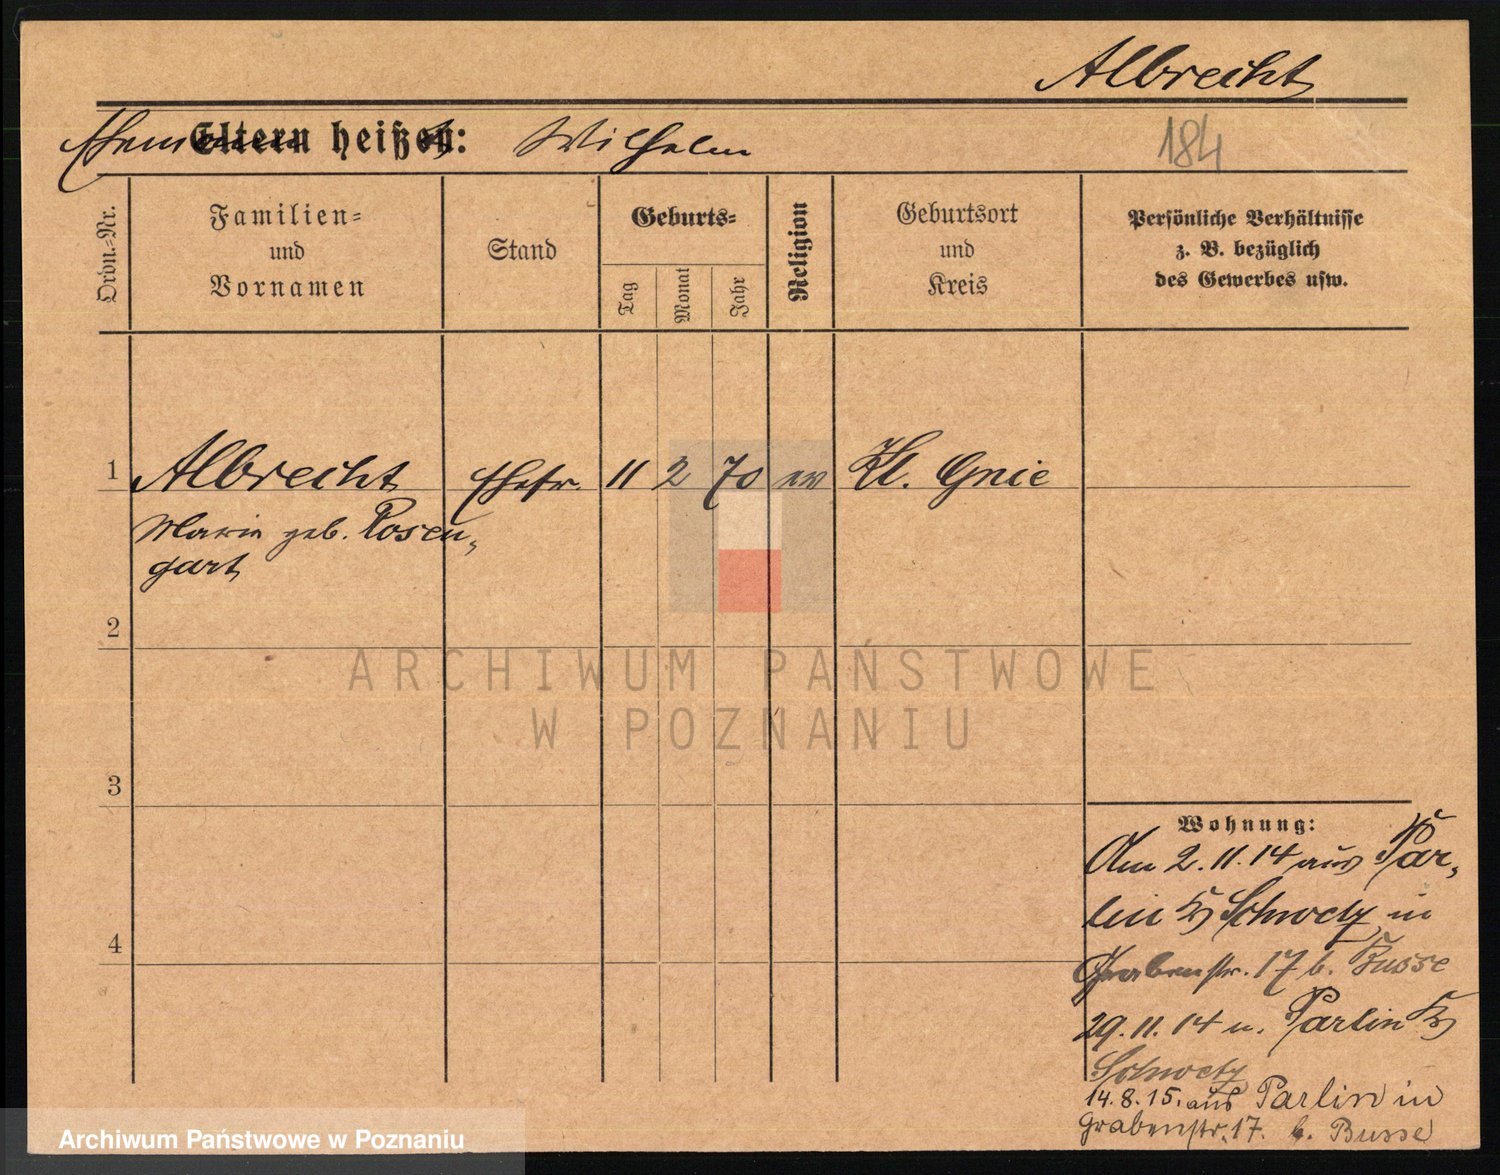 Albrecht
Ehem Eltern heißen: Wilhelm
184
Ordn.=Nr.
Familien=
und
Vornamen
Stand
Geburts=
Tag
Monat
Jahr
Religion
Geburtsort
und
Kreis
Persönliche Verhältnisse
z. B. bezüglich
des Gewerbes usw.
1 Albrecht Ehefr. 11 2 70 ev Kl. Gnie
Marie geb. Rosen-
gart
2
3
4
Wohnung:
Am 2.11.14 aus Par-
lin Kr Schwetz in
Grabenstr. 17 b. Busse
29.11.14 n. Parlin Kr
Schwetz
14.8.15. aus Parlin in
Grabenstr. 17. b. Busse
ARCHIWUM PAŃSTWOWE
W POZNANIU
Archiwum Państwowe w Poznaniu